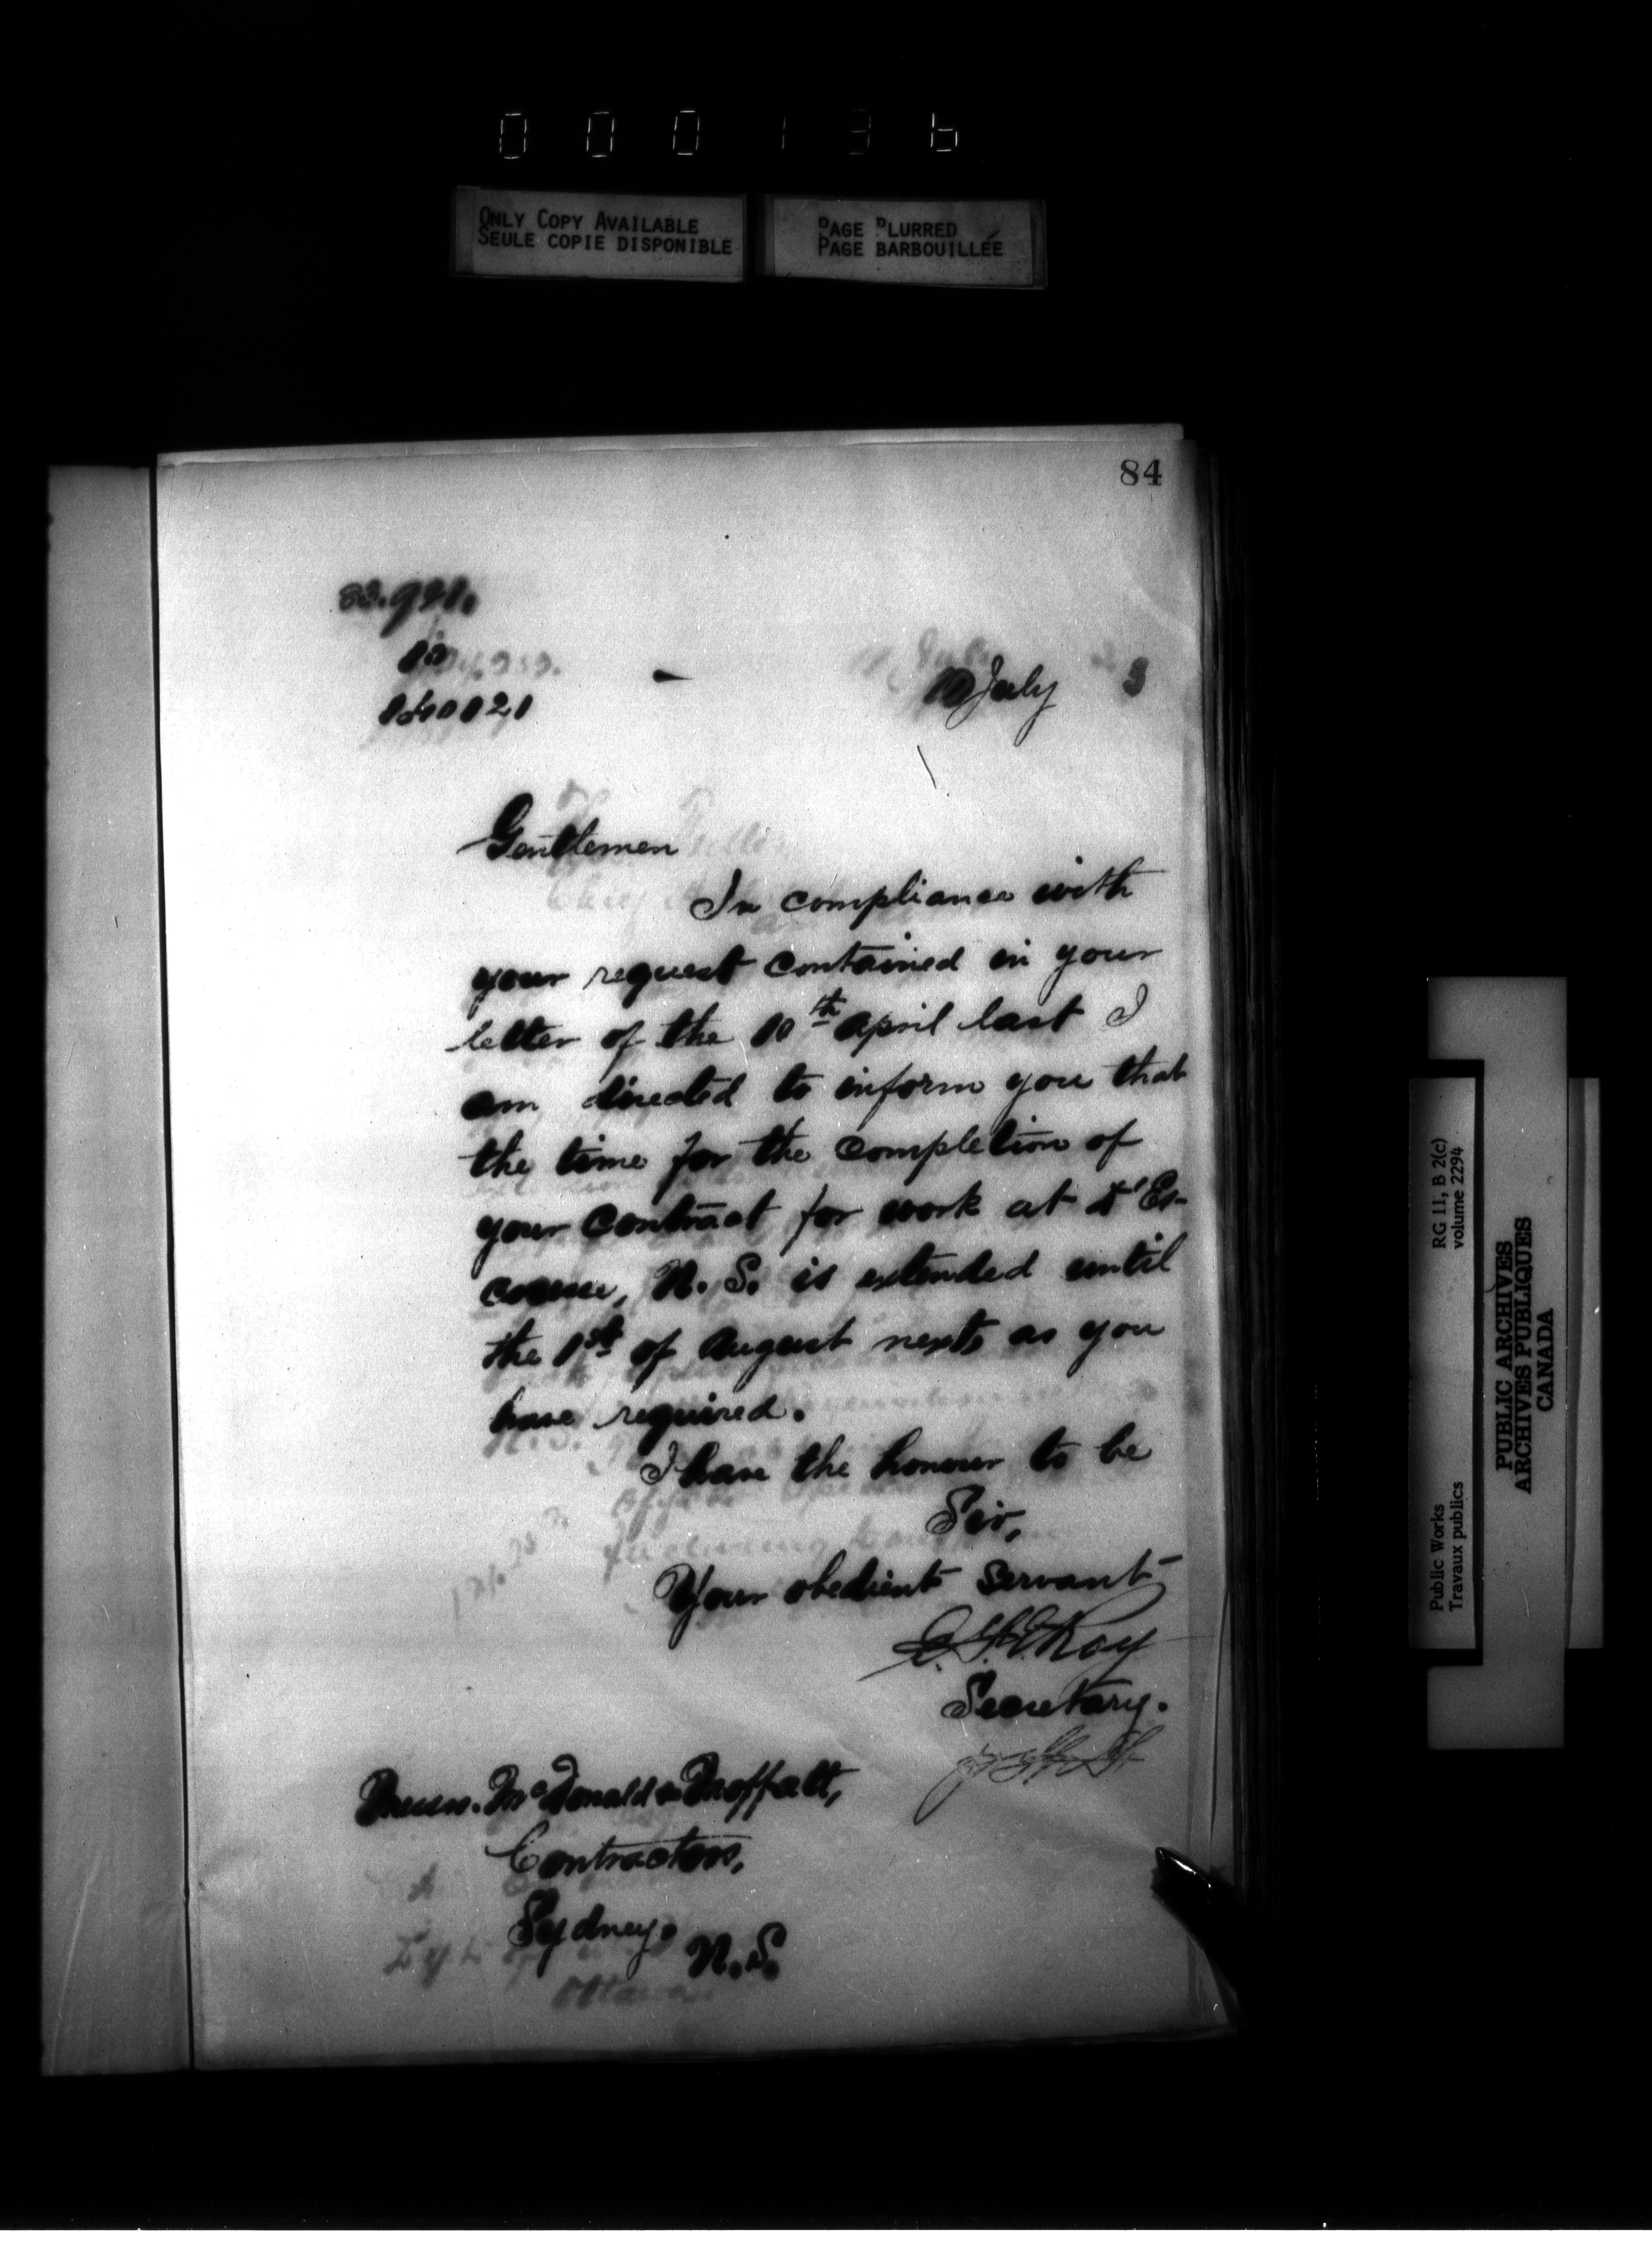 000136
ONLY COPY AVAILABLE
SEULE COPIE DISPONIBLE
PAGE BLURRED
PAGE BARBOUILLÉE
84
July 3
Gentlemen
In compliance with
your request contained in your
letter of the 10th April last I
am directed to inform you that
the time for the completion of
your contract for work at D'Es-
cousse, N. S. is extended until
the 1st of August next, as you
have required.
I have the honour to be
Sir,
Your obedient servant
Roy
Secretary.
Messrs. McDonald & Moffatt,
Contractors,
Sydney.
N.S.
Public Works
Travaux publics
RG 11, B 2(c)
volume 2294
PUBLIC ARCHIVES
ARCHIVES PUBLIQUES
CANADA